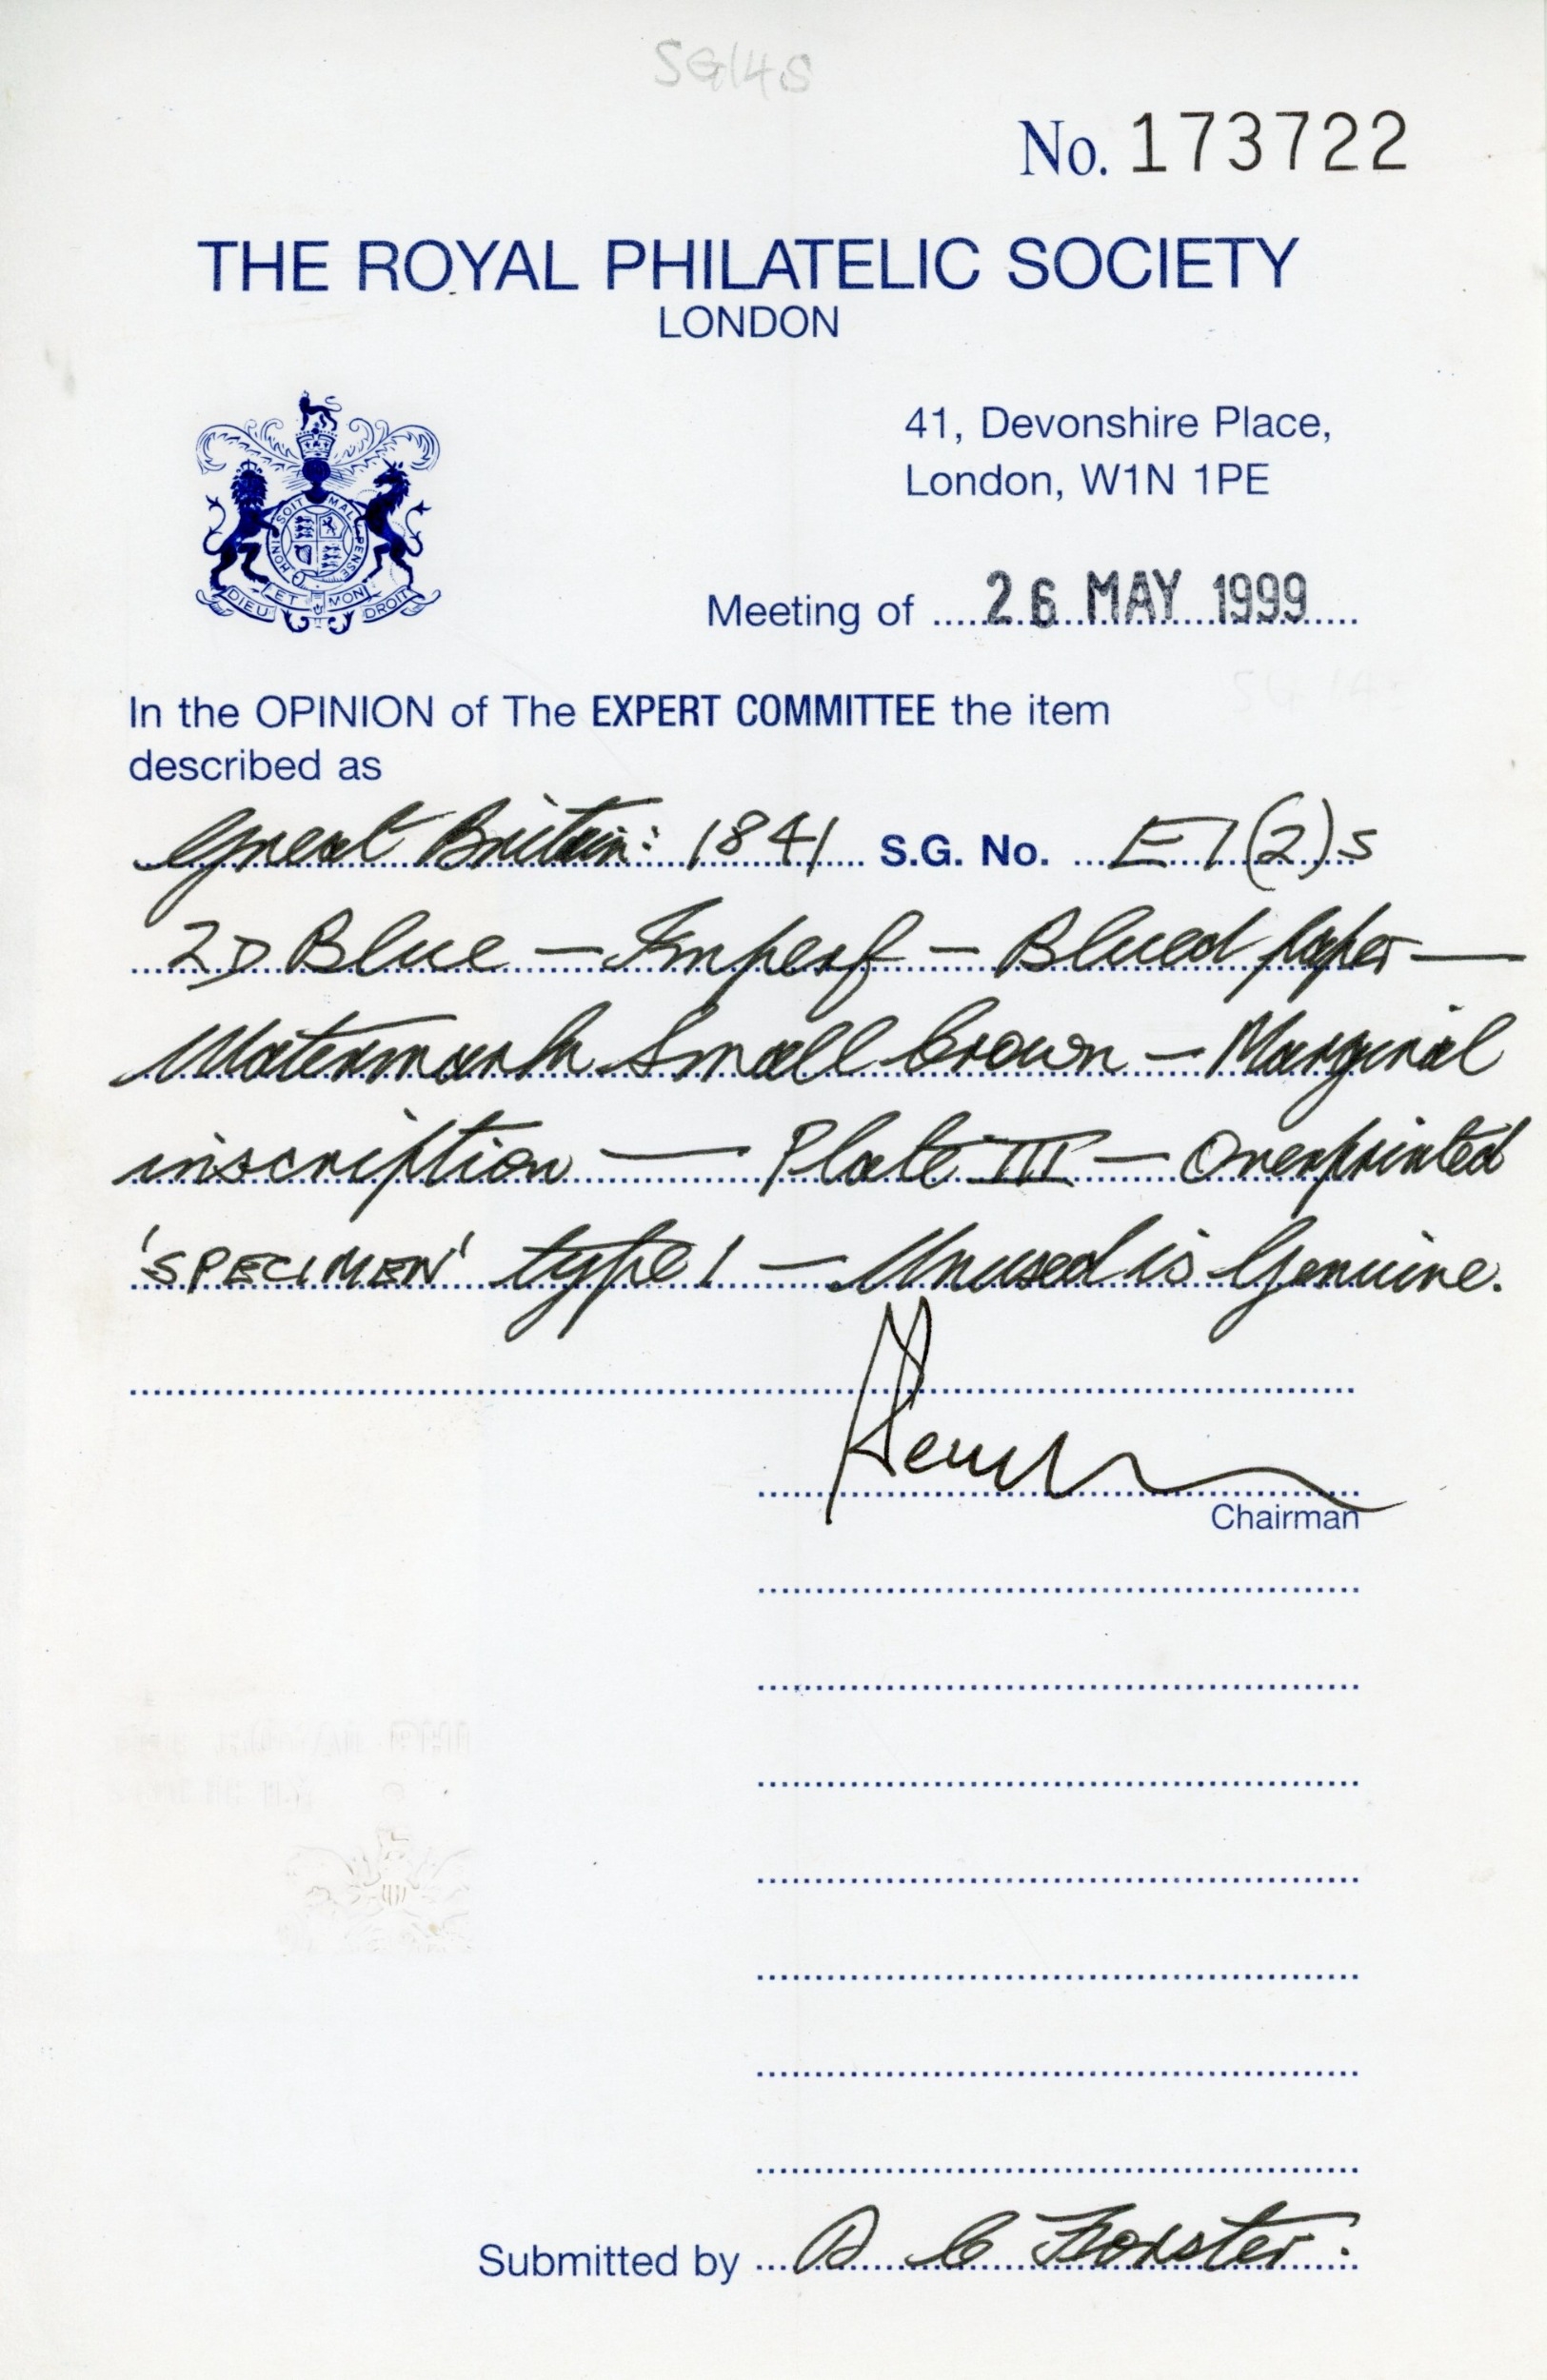 SG14S
No. 173722
THE ROYAL PHILATELIC SOCIETY
LONDON
41, Devonshire Place,
London, W1N 1PE
HONI SOIT MAL PENSE
DIEU ET MON DROIT
Meeting of 26 MAY 1999
In the OPINION of The EXPERT COMMITTEE the item
described as
Great Britain: 1841 S.G. No. E1(2)s
2D Blue — Imperf — Blued paper —
Watermark Small Crown — Marginal
inscription — Plate III — Overprinted
'SPECIMEN' type 1 — Unused is Genuine.
Chairman
Submitted by A C Forster.